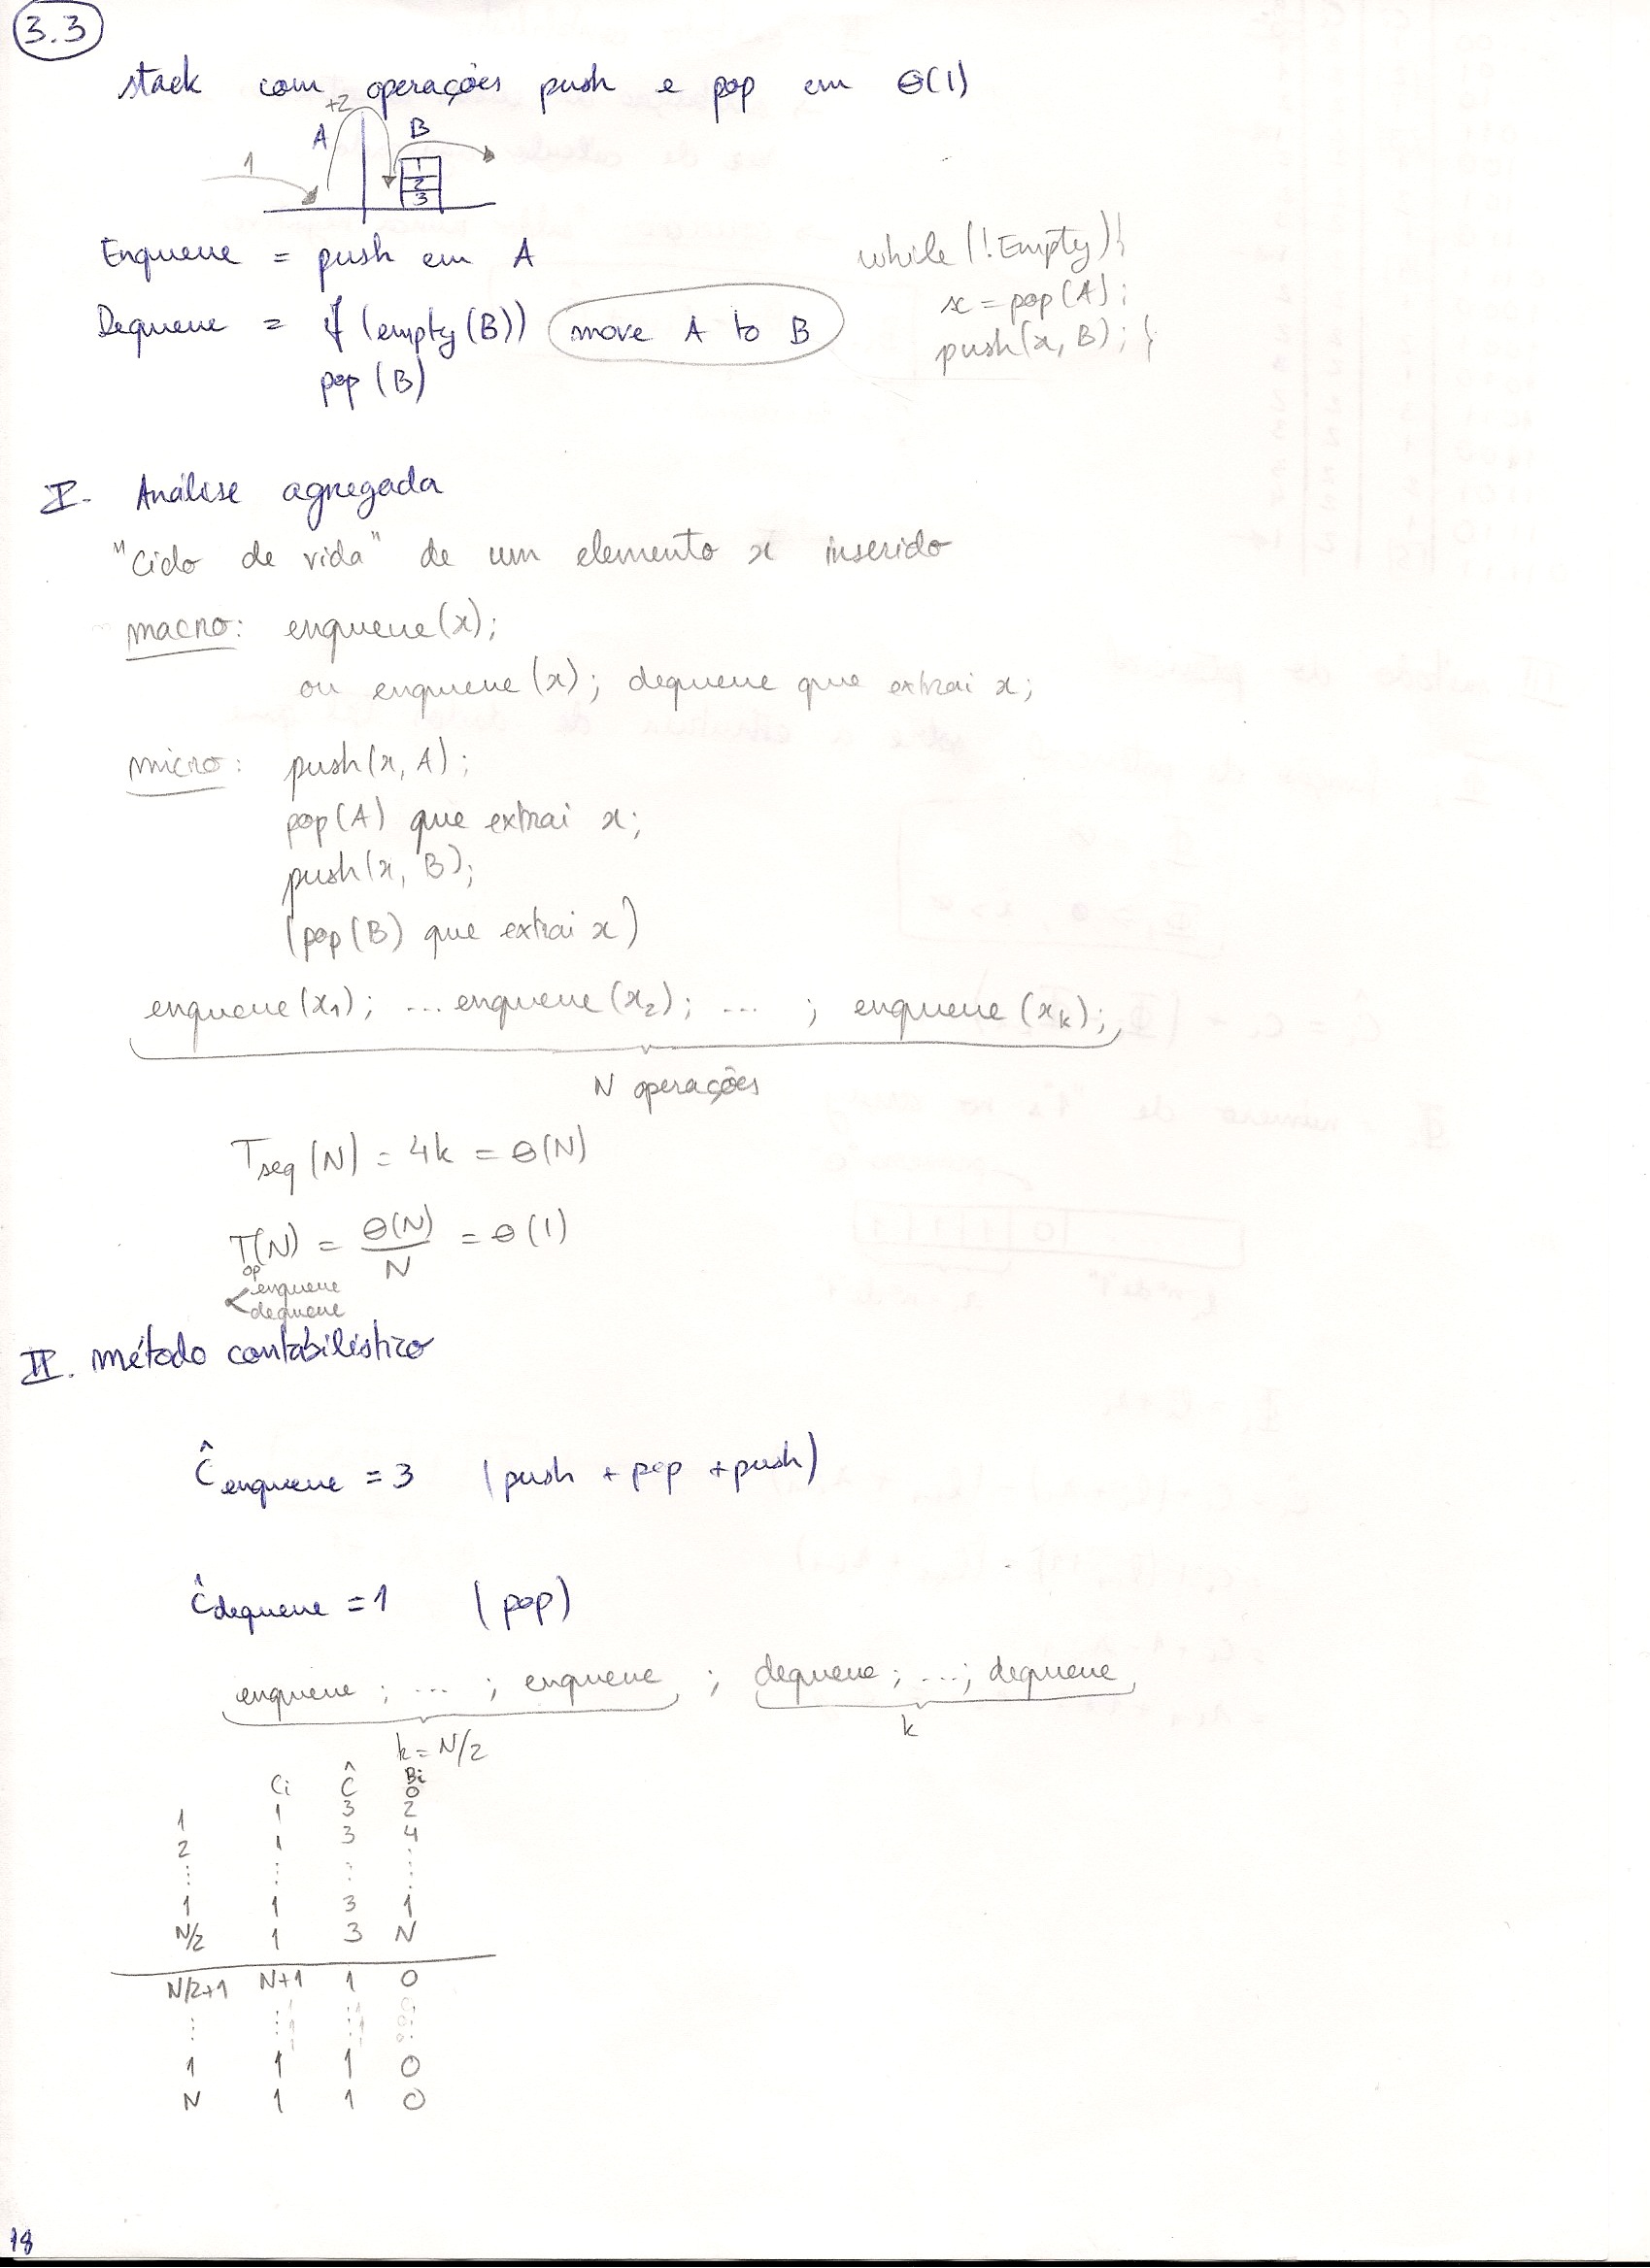 3.3
stack com operações push e pop em Θ(1)
+2
A B
1
1
2
3
Enqueue = push em A
Dequeue = if (empty(B)) move A to B
pop (B)
while (!Empty){
x = pop(A);
push(x, B); }
I. Análise agregada
"Ciclo de vida" de um elemento x inserido
macro: enqueue(x);
ou enqueue(x); dequeue que extrai x;
micro: push(x, A);
pop(A) que extrai x;
push(x, B);
(pop(B) que extrai x)
enqueue(x1); ... enqueue(x2); ... ; enqueue(xk);
N operações
Tseq(N) = 4k = Θ(N)
T(N) = Θ(N)/N = Θ(1)
op
< enqueue
dequeue
II. Método contabilístico
Ĉenqueue = 3 (push + pop + push)
Ĉdequeue = 1 (pop)
enqueue ; ... ; enqueue ; dequeue ; ... ; dequeue
k = N/2 k
Ci Ĉ Bi
0
1 1 3 2
2 1 3 4
⋮ ⋮ ⋮ ⋮
1 1 3 1
N/2 1 3 N
N/2+1 N+1 1 0
⋮ ⋮ ⋮ ⋮
1 1 1 0
N 1 1 0
18